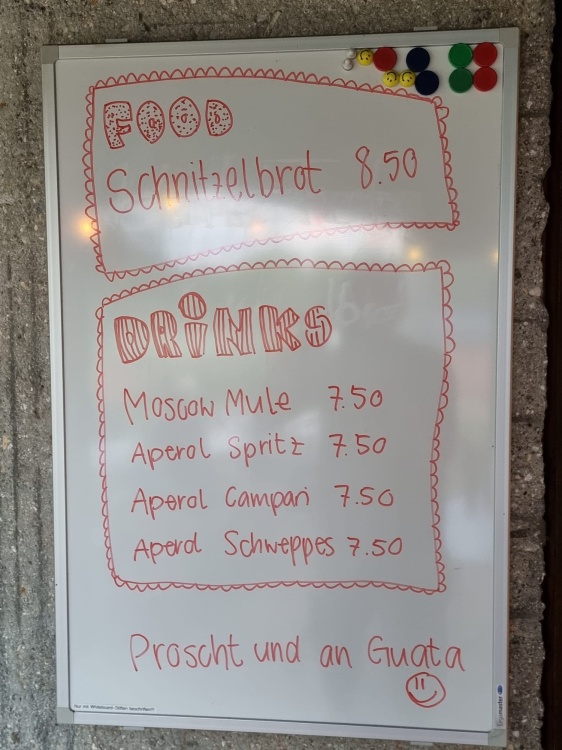 FOOD
Schnitzelbrot 8.50
DRiNKS
Moscow Mule 7.50
Aperol Spritz 7.50
Aperol Campari 7.50
Aperol Schweppes 7.50
Proscht und an Guata
Nur mit Whiteboard-Stiften beschriften!!